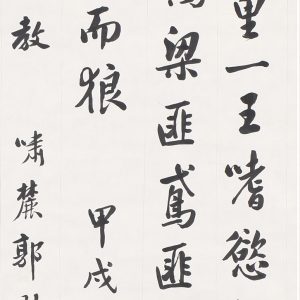 里一王嗜慾
梁匪鳶匪
而狼 甲戌
教 嘯麓郭